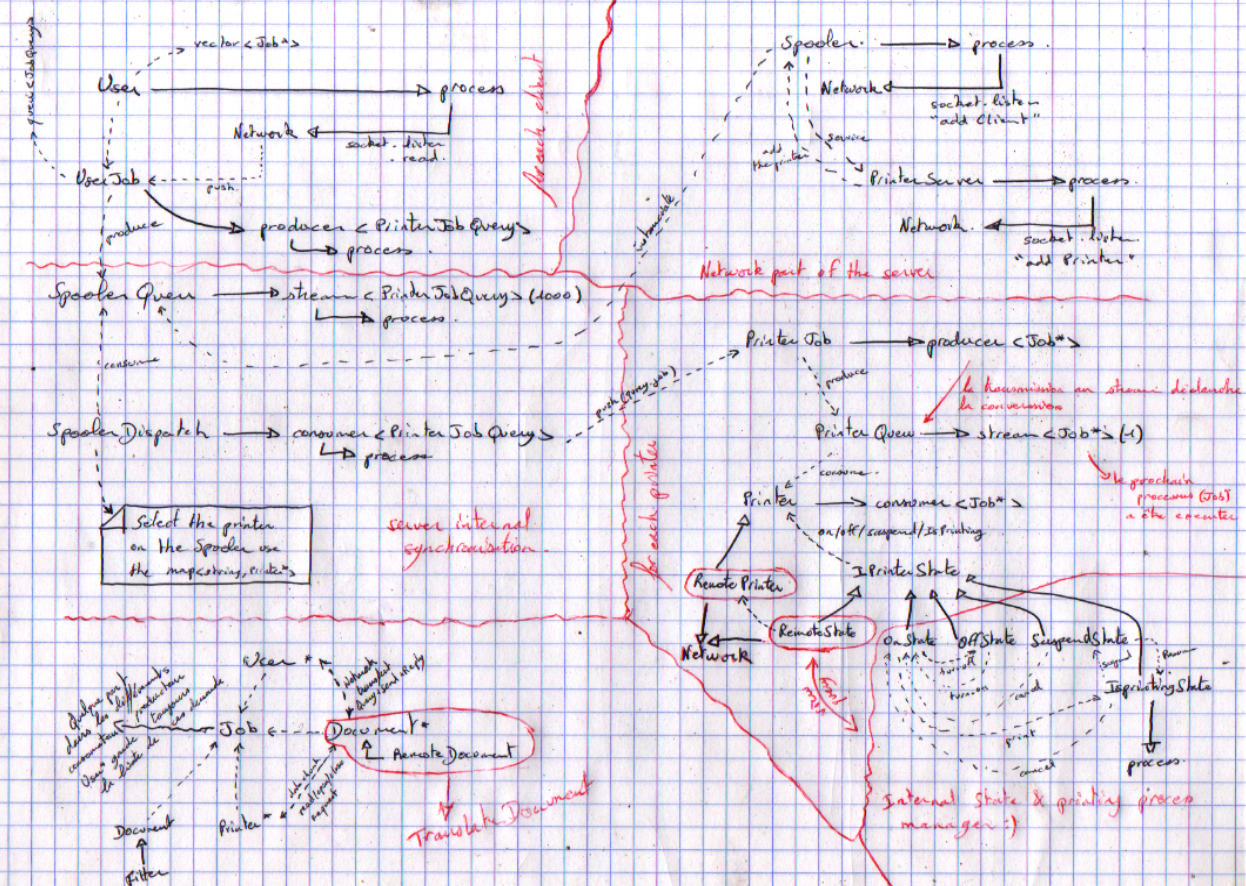 queue<JobQuery>
vector<Job*>
User
process
Network
socket.listen
read.
for each client
UserJob
push.
produce
producer <PrinterJobQuery>
process.
Spooler.
process.
Network
socket.listen
"add Client"
service
add
the printer
PrinterServer
process.
Network.
socket.listen
"add Printer"
Network part of the server
Spooler Queu
stream <PrinterJobQuery> (1000)
process.
consume
Spooler Dispatch
consumer <PrinterJobQuery>
process
push(query.job)
Select the printer
on the Spooler use
the map<string, Printer*>
server internal
synchronisation.
for each printer
Printer Job
producer <Job*>
produce
la transmission au stream déclenche
la conversion
Printer Queu
stream <Job*> (-1)
le prochain
processus (Job)
a être executer
consume.
Printer
consumer <Job*>
on/off/suspend/IsPrinting
Remote Printer
IPrinterState
RemoteState
Network
OnState
OffState
SuspendState
turnoff
turnon
cancel
suspend
IsprintingState
print
cancel
process.
Internal State & printing proces
manager :)
User *
Network
Quelque part
dans les différents
producteur
consommateur
toujours
User garde
la liste de
ces demande
Job
Document *
Remote Document
Translate Document
data chunk
read/open/close
request
Document
Printer *
Filter